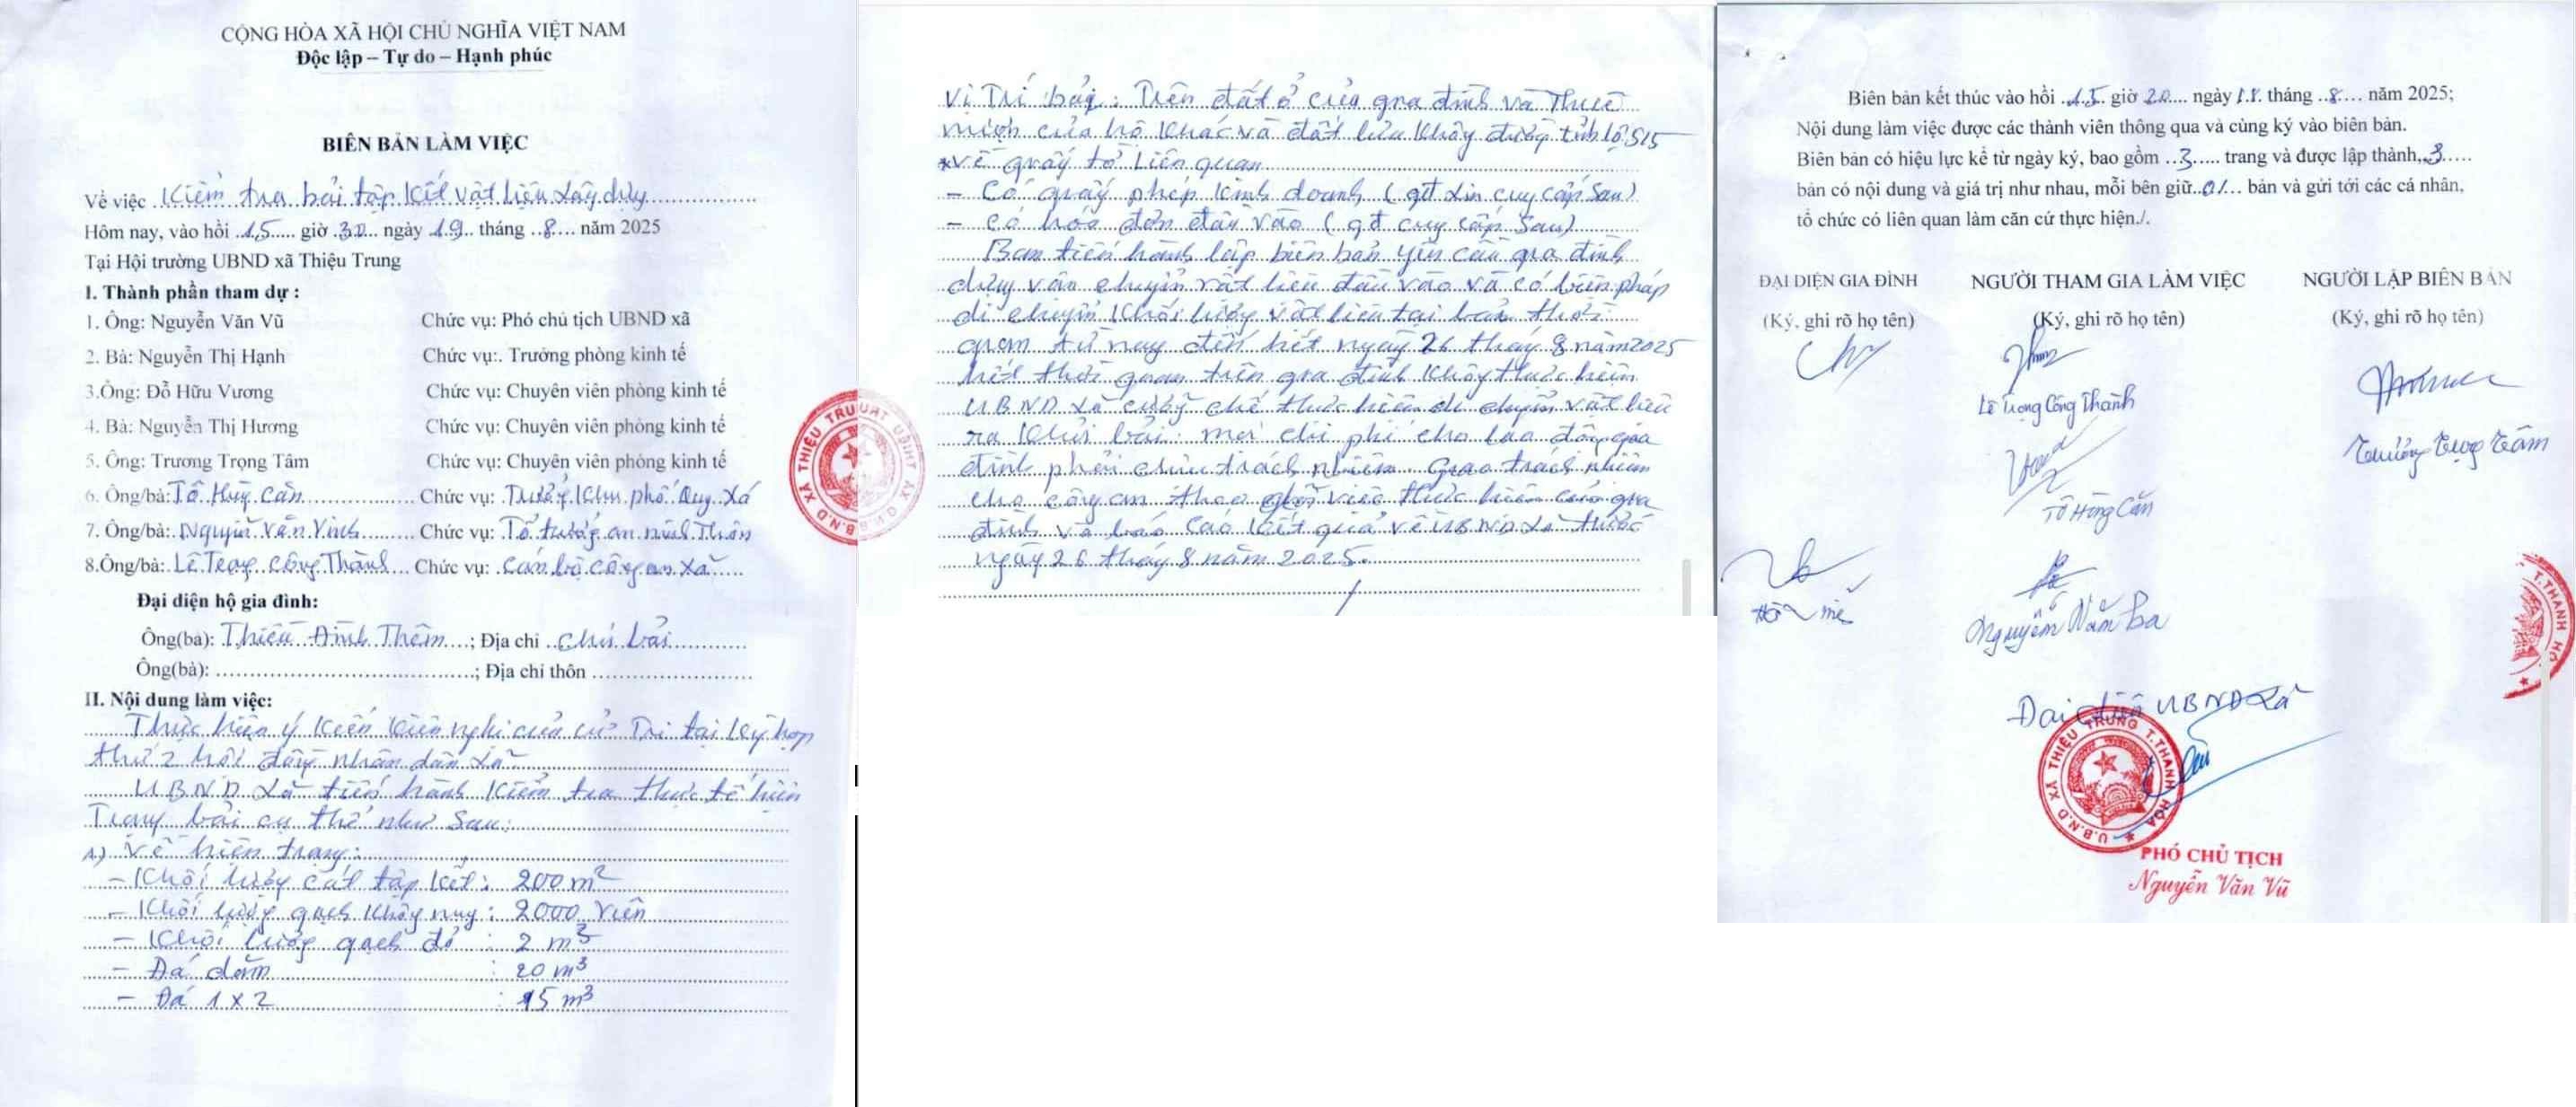 CỘNG HÒA XÃ HỘI CHỦ NGHĨA VIỆT NAM
Độc lập – Tự do – Hạnh phúc
BIÊN BẢN LÀM VIỆC
Về việc Kiểm tra bải tập kết vật liệu xây dựng
Hôm nay, vào hồi 15 giờ 30 ngày 19 tháng 8 năm 2025
Tại Hội trường UBND xã Thiệu Trung
I. Thành phần tham dự :
1. Ông: Nguyễn Văn Vũ Chức vụ: Phó chủ tịch UBND xã
2. Bà: Nguyễn Thị Hạnh Chức vụ:. Trưởng phòng kinh tế
3.Ông: Đỗ Hữu Vương Chức vụ: Chuyên viên phòng kinh tế
4. Bà: Nguyễn Thị Hương Chức vụ: Chuyên viên phòng kinh tế
5. Ông: Trương Trọng Tâm Chức vụ: Chuyên viên phòng kinh tế
6. Ông/bà: Tô Chức vụ: Trưởng khu phố Quy Xá
7. Ông/bà: Nguyễn Văn Vinh Chức vụ: Tổ trưởng an ninh Thôn
8.Ông/bà: Lê Trọng Công Thành Chức vụ: Cán bộ công an xã
Đại diện hộ gia đình:
Ông(bà): Thiều Đình Thêm; Địa chỉ chủ bải
Ông(bà): ; Địa chỉ thôn
II. Nội dung làm việc:
Thực hiện ý kiến kiến nghị của cử Tri tại kỳ họp
thứ 2 hội đồng nhân dân xã
UBND xã tiến hành kiểm tra thực tế hiện
Trạng bải cụ thể như sau:
1) Về hiện trạng:
- Khối lượng cát tập kết: 200 m2
- Khối lượng gạch không nung: 2000 viên
- Khối lượng gạch đỏ : 2 m3
- Đá dăm : 20 m3
- Đá 1 x 2 : 15 m3
Vị Trí bải: Trên đất ở của gia đình và Thuê
mượn của hộ khác và đất lưu không đường tỉnh lộ 515
*Về giấy tờ liên quan
- Có giấy phép kinh doanh (gđ xin cung cấp sau)
- Có hóa đơn đầu vào (gđ cung cấp sau)
Ban tiến hành lập biên bản yêu cầu gia đình
dừng vận chuyển vật liệu đầu vào và có biện pháp
di chuyển khối lượng vật liệu tại bải thời
gian từ nay đến hết ngày 26 tháng 8 năm 2025
hết thời gian trên gia đình không thực hiện
UBND xã cưỡng chế thực hiện di chuyển vật liệu
ra khỏi bải. mọi chi phí cho lao động gia
đình phải chịu trách nhiệm. Giao trách nhiệm
cho công an theo giỏi việc thực hiện của gia
đình và báo cáo kết quả về UBND xã trước
ngày 26 tháng 8 năm 2025.
Biên bản kết thúc vào hồi 15 giờ 20 ngày tháng 8 năm 2025;
Nội dung làm việc được các thành viên thông qua và cùng ký vào biên bản.
Biên bản có hiệu lực kể từ ngày ký, bao gồm 3 trang và được lập thành 3
bản có nội dung và giá trị như nhau, mỗi bên giữ 01 bản và gửi tới các cá nhân,
tổ chức có liên quan làm căn cứ thực hiện./.
ĐẠI DIỆN GIA ĐÌNH NGƯỜI THAM GIA LÀM VIỆC NGƯỜI LẬP BIÊN BẢN
(Ký, ghi rõ họ tên) (Ký, ghi rõ họ tên) (Ký, ghi rõ họ tên)
Lê Trọng Công Thành
Trương Trọng Tâm
Nguyễn Văn Ba
Đại diện UBND xã
U.B.N.D XÃ THIỆU TRUNG T.THANH HÓA
PHÓ CHỦ TỊCH
Nguyễn Văn Vũ